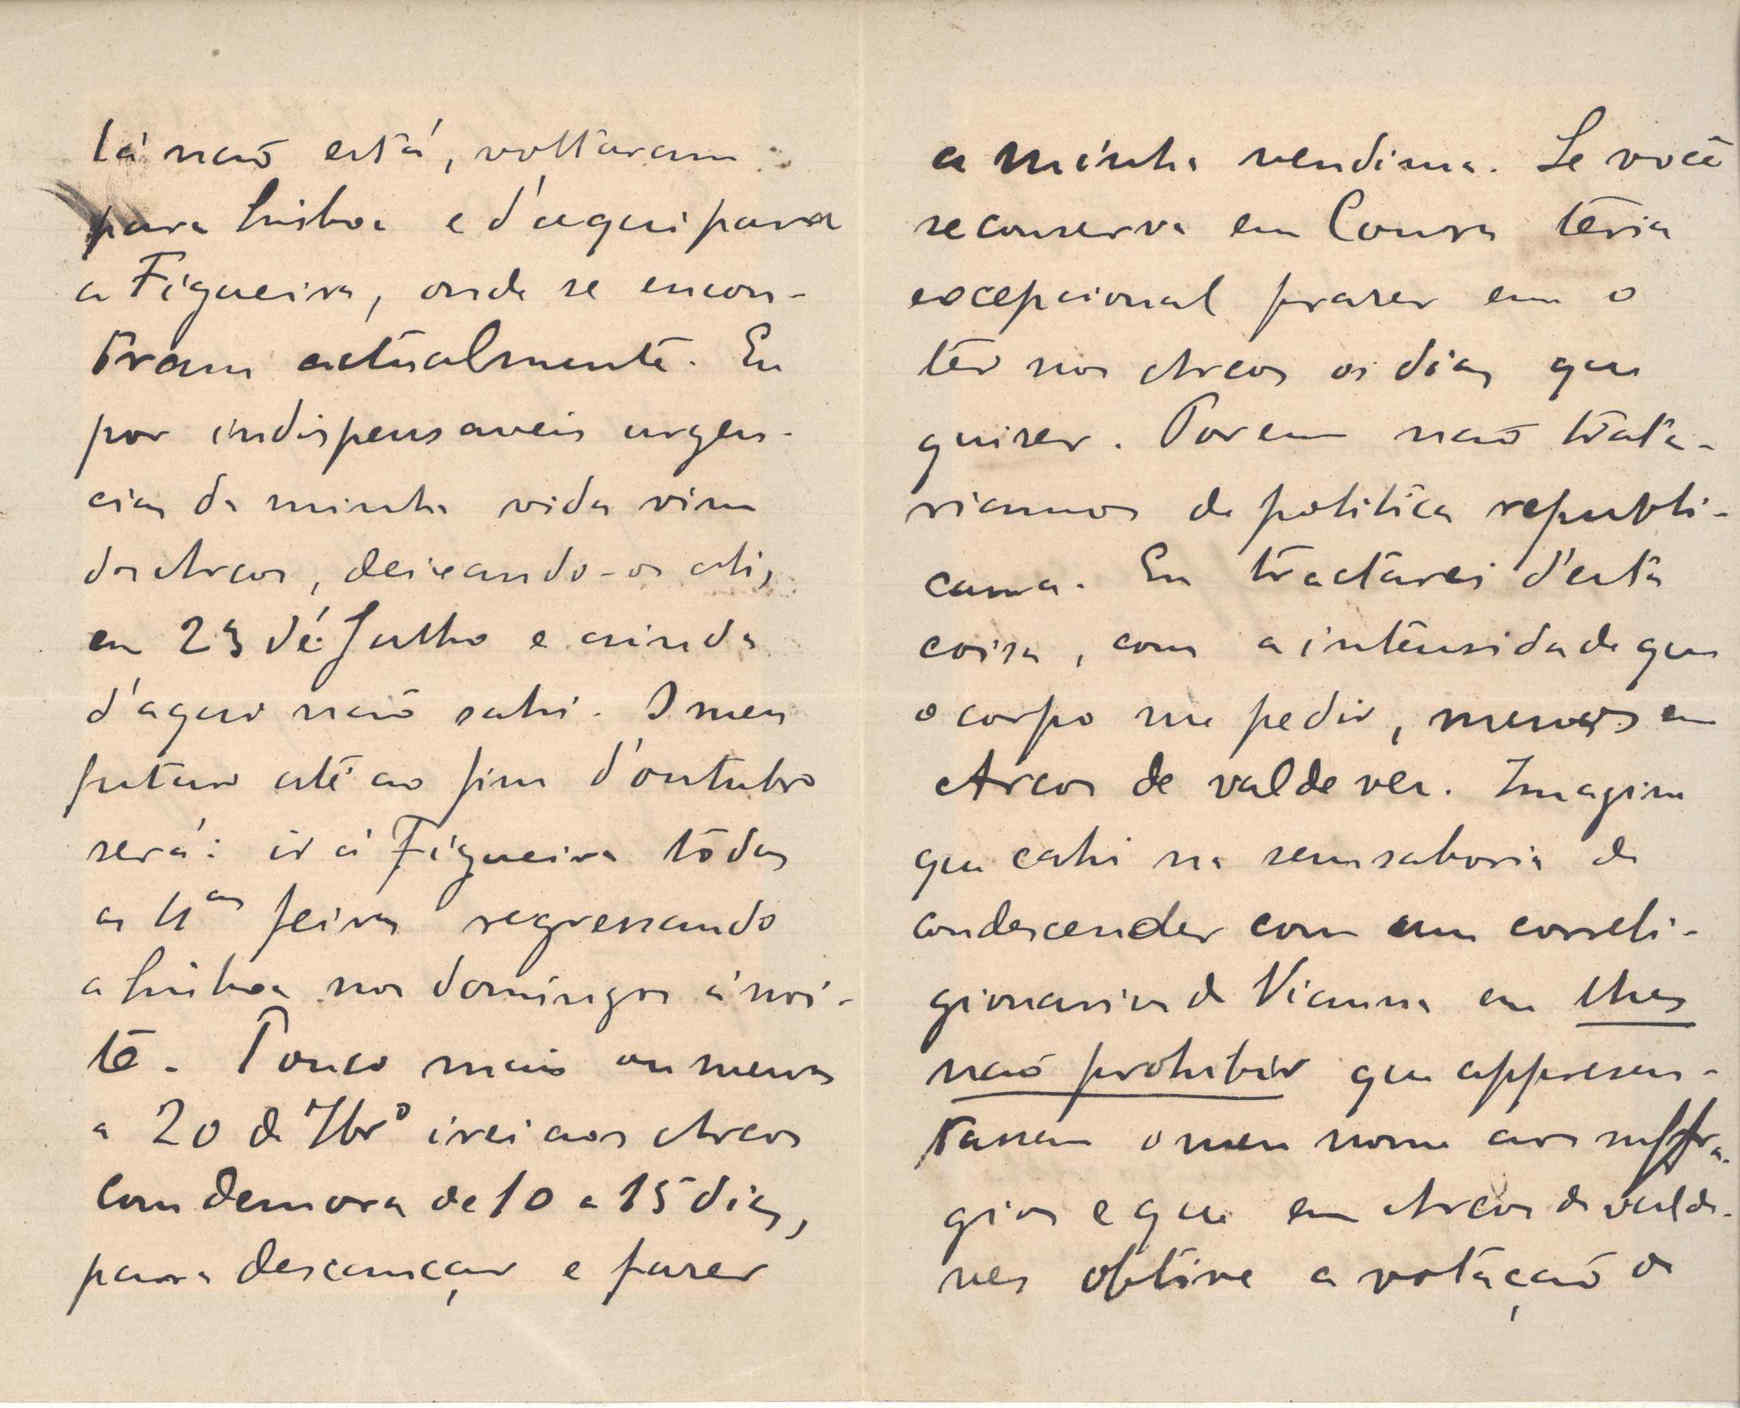 lá não está, voltaram
para Lisboa e d'aqui para
a Figueira, onde se encon-
tram actualmente. Eu
por indispensaveis urgen-
cias da minha vida vim
dos Arcos, deixando-os ali,
em 23 de Julho e ainda
d'aqui não sahi. O meu
futuro até ao fim d'outubro
será: ir á Figueira tôdas
as 4as feiras regressando
a Lisboa nos domingos á noi-
te. Pouco mais ou menos
a 20 de 7bro irei aos Arcos
com demora de 10 a 15 dias,
para descançar e fazer
a minha vendima. Se você
se conserva em Coura teria
excepcional prazer em o
ter nos Arcos os dias que
quizer. Porem não trata-
riamos de politica republi-
cana. Eu tractarei d'esta
coisa, com a intensidade que
o corpo me pedir, menos em
Arcos de valdevez. Imagine
que cahi na semsaboria de
condescender com um correli-
gionario de Vianna em lhes
não prohibir que appresen-
tassem o meu nome aos suffra-
gios e que em Arcos de valde-
vez obtive a votação de